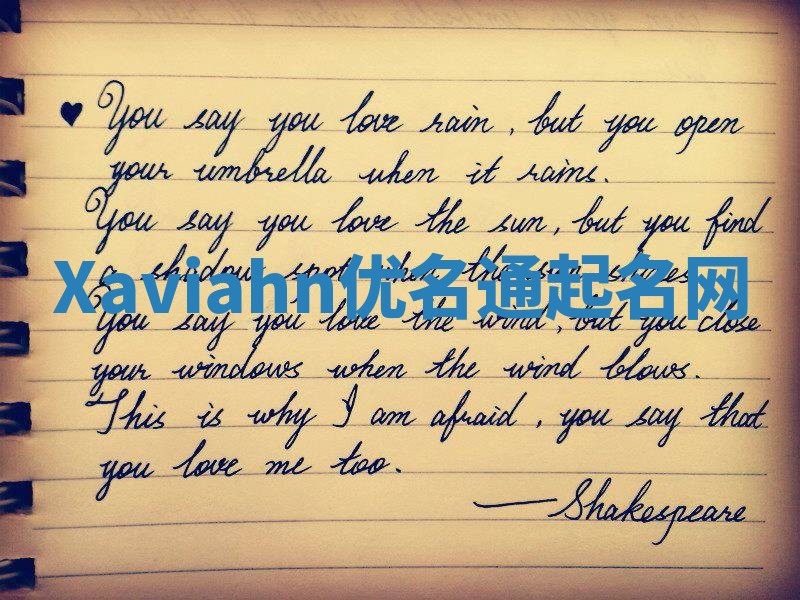 ♥ You say you love rain, but you open
your umbrella when it rains.
You say you love the sun, but you find
a shadow spot when the sun shines.
Xaviahn优名通起名网
You say you love the wind, but you close
your windows when the wind blows.
This is why I am afraid, you say that
you love me too.
— Shakespeare